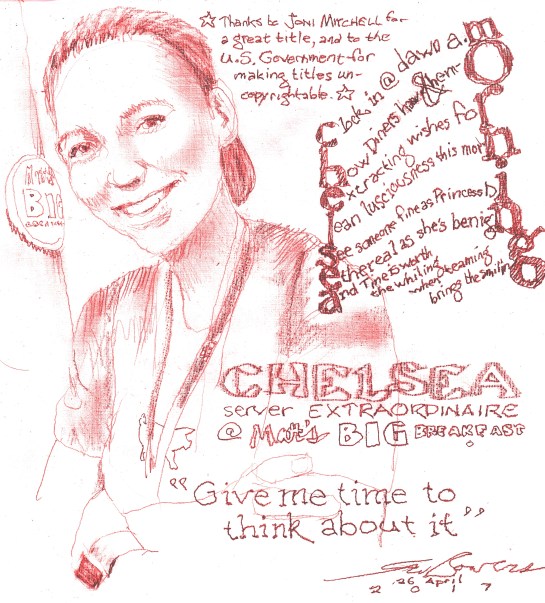 ☆Thanks to JONI MITCHELL for
a great title, and to the
U.S. Government for
making titles un-
copyrightable.☆
Clock in @ dawn a.m
&
how Diners have them-o
extracting wishes for
lean lusciousness this morn
see someone fine as Princess Di
ethereal as she's benign
and Time is worth
the whiling
when teaming
brings the smiling
BIG
CHELSEA
server EXTRAORDINAIRE
@ Matt's BIG BREAKFAST
"Give me time to
think about it"
Bowers
26 April
2017